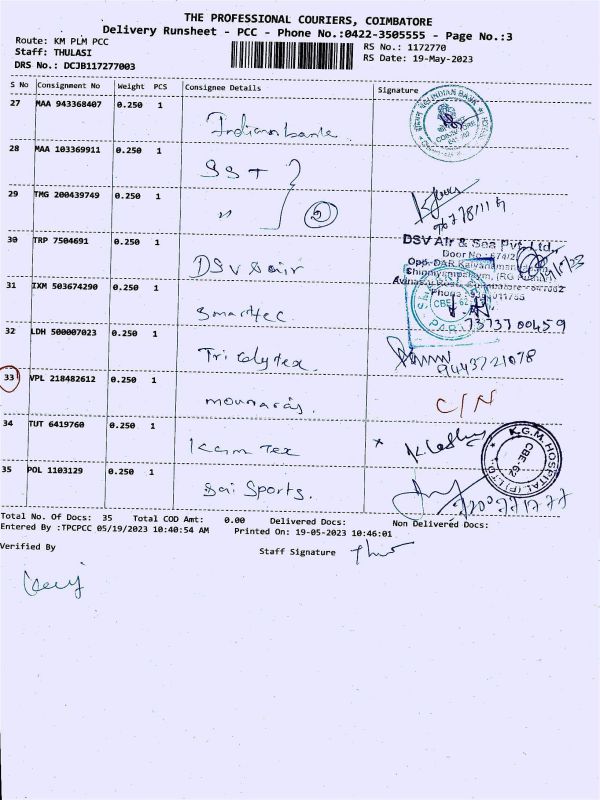 THE PROFESSIONAL COURIERS, COIMBATORE
Delivery Runsheet - PCC - Phone No.:0422-3505555 - Page No.:3
Route: KM PLM PCC
RS No.: 1172770
Staff: THULASI
RS Date: 19-May-2023
DRS No.: DCJB117277003
S No Consignment No Weight PCS Consignee Details Signature
27 MAA 943368407 0.250 1 Indianbank
28 MAA 103369911 0.250 1 SST
29 TMG 200439749 0.250 1 " 2
30 TRP 7504691 0.250 1 DSV air
DSV Air & Sea Pvt. Ltd.,
Door No.: 874/2
31 IXM 503674290 0.250 1 Smartec
7373700459
32 LDH 500007023 0.250 1
9443721078
33 VPL 218482612 0.250 1 C/N
34 TUT 6419760 0.250 1 KGM Tex
K.G.M. HOSPITAL (P) LTD.
CBE-62
35 POL 1103129 0.250 1 Sai Sports.
Total No. Of Docs: 35 Total COD Amt: 0.00 Delivered Docs: Non Delivered Docs:
Entered By :TPCPCC 05/19/2023 10:40:54 AM Printed On: 19-05-2023 10:46:01
Verified By
Staff Signature